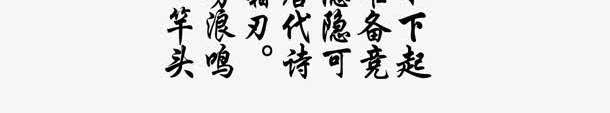 下起
备竞
隐可
代诗
刃。
浪鸣
竿头